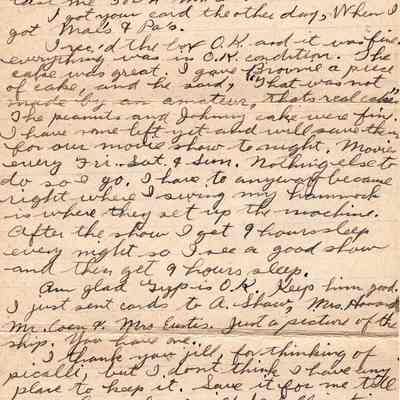 I got your card the other day, When I
got Ma's & Pa's.
I rec,'d the box O.K. and it was fine.
everything was in O.K. condition. The
cake was great. I gave Browne a piece
of cake, and he said, "That was not
made by an amateur, thats real cake".
The peanuts and Johnny cake were fine.
I have some left yet and will save them
for our movie show to night. Movies
every Fri. Sat. & Sun. Nothing else to
do so I go. I have to anyway because
right where I swing my hammock
is where they set up the machine.
After the show I get 9 hours sleep
every night so I see a good show
and then get 9 hours sleep.
Am glad Gyp is O.K. Keep him good.
I just sent cards to A. Shaw, Mrs. Howard
Mr. Coen & Mrs Eustis. Just a picture of the
ship. You have one.
I thank you Jill, for thinking of
picalli, but I don't think I have any
place to keep it. Save it for me till